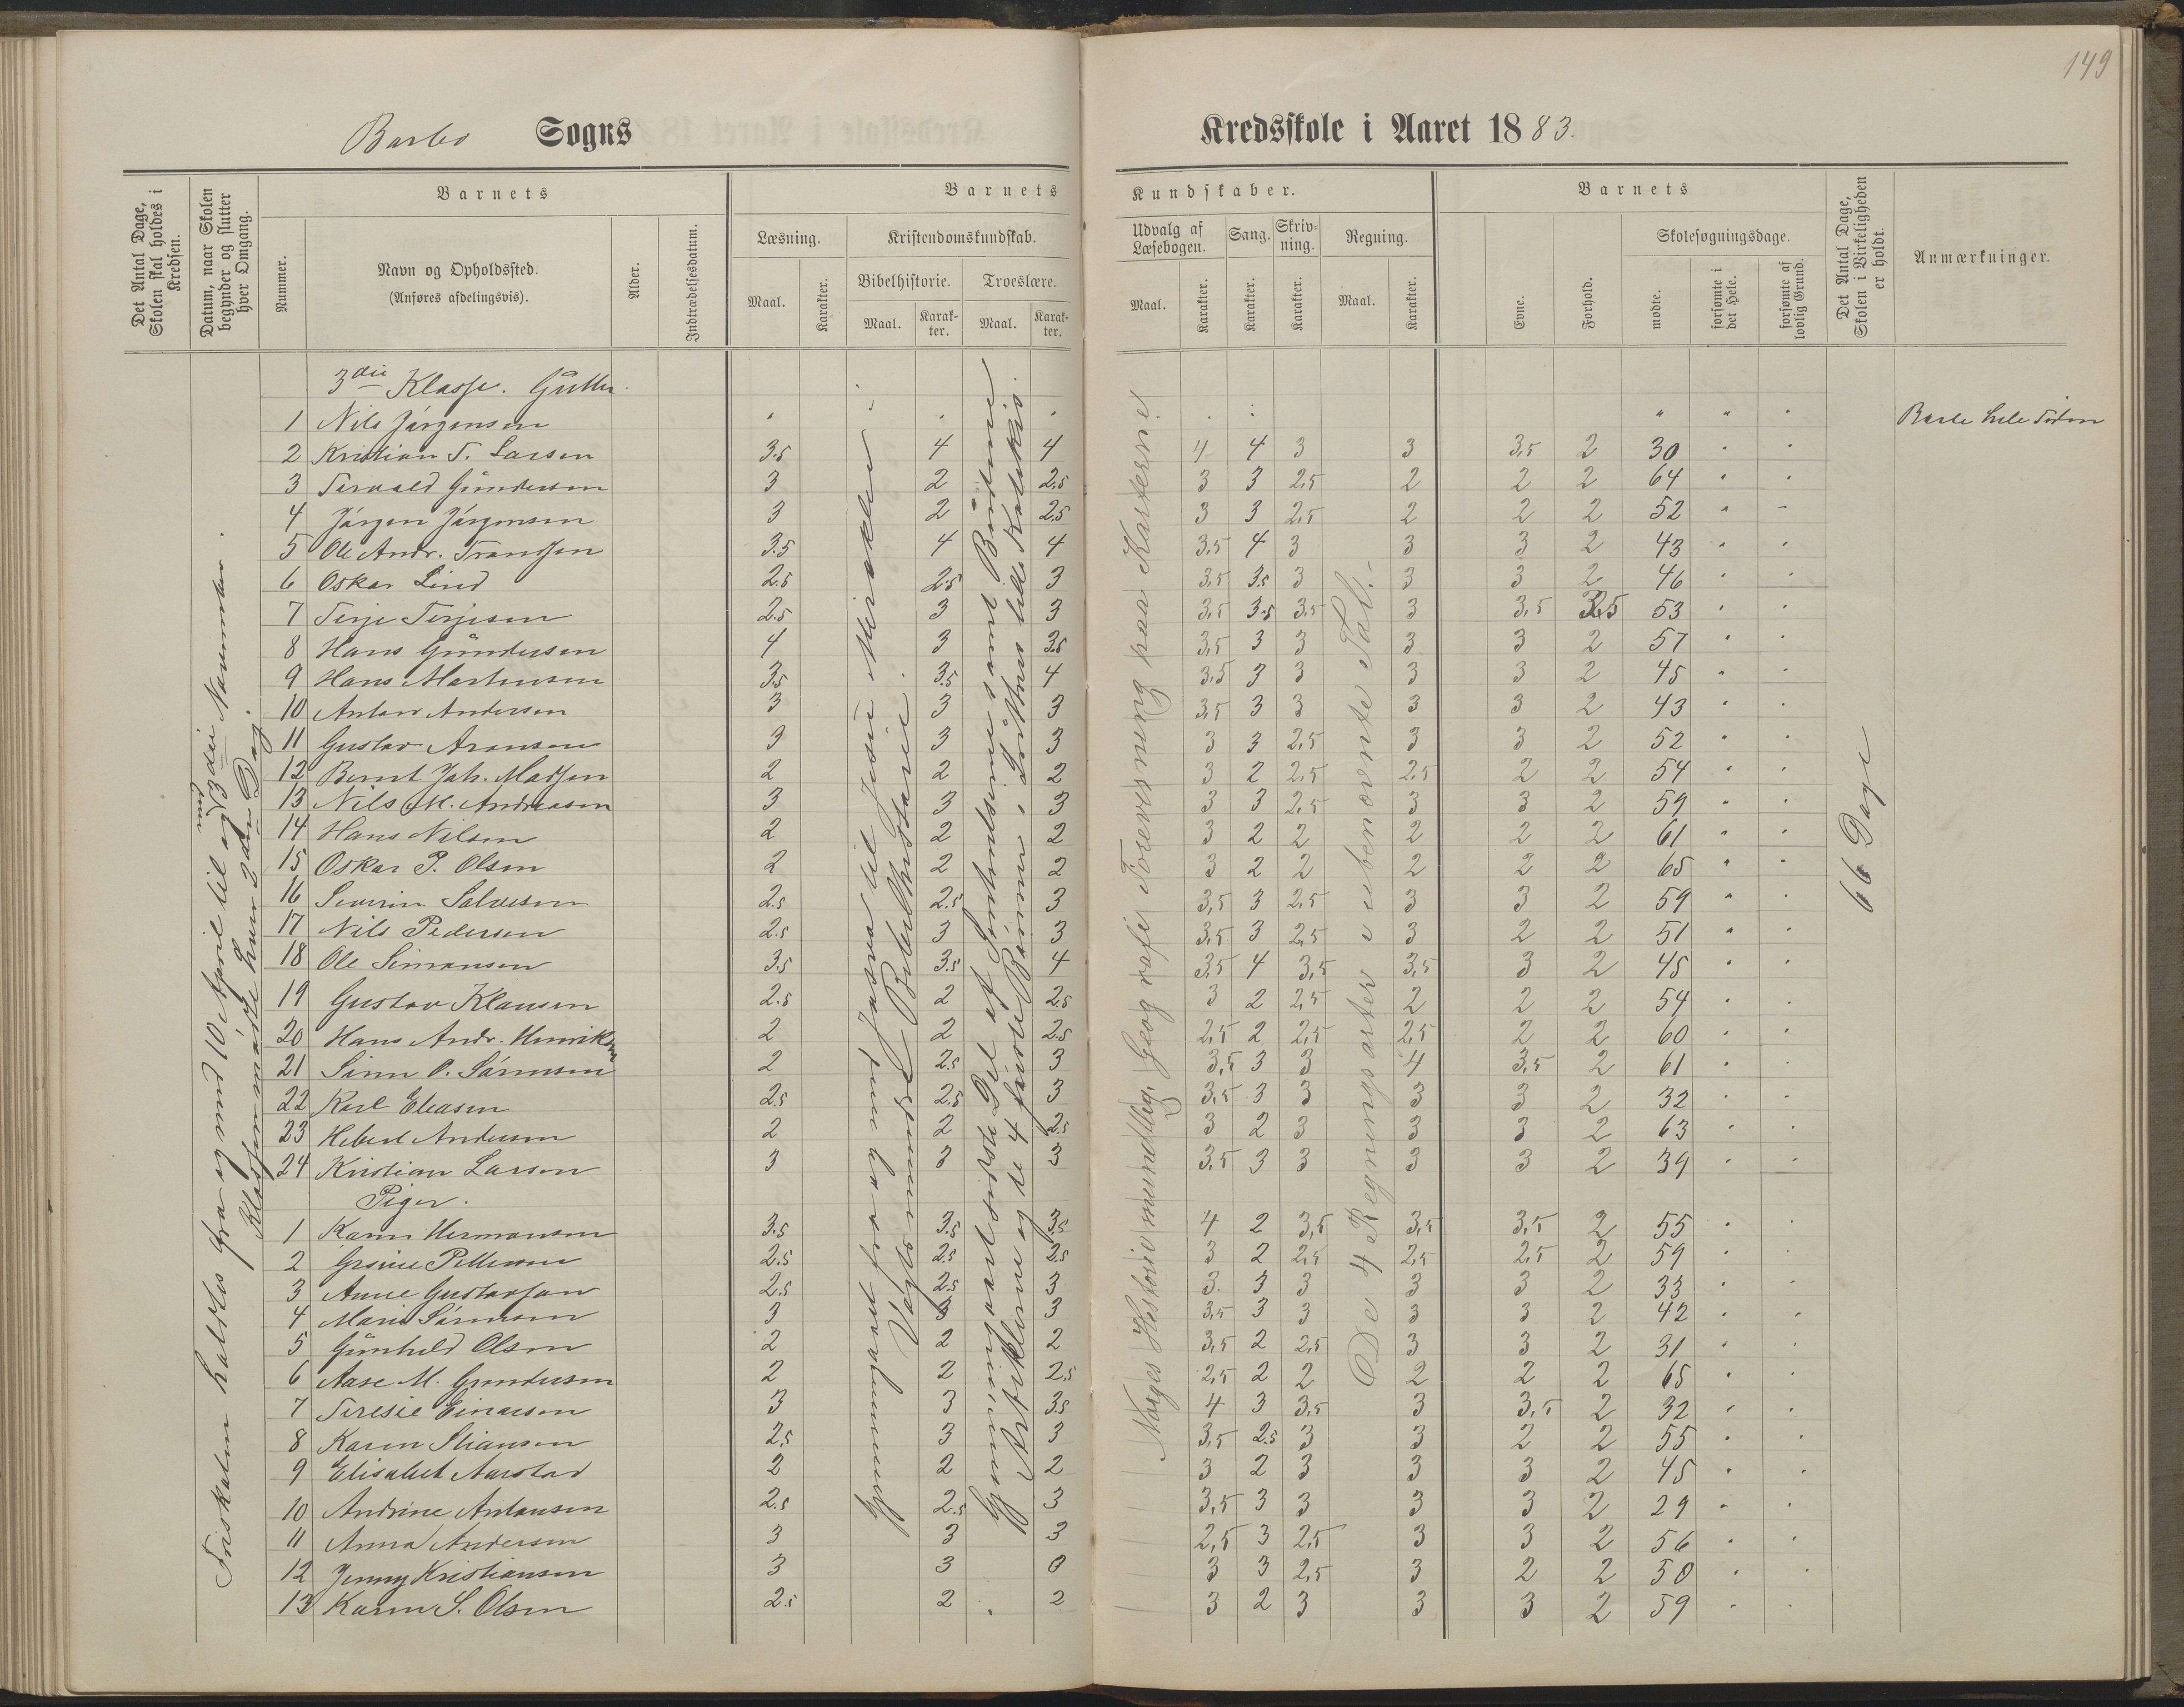 149
Barbo Sogns Kredsskole i Aaret 1883.
Det Antal Dage, Skolen skal holdes i Kredsen.
Datum, naar Skolen begynder og slutter hver Omgang.
Barnets
Nummer.
Navn og Opholdssted.
(Anføres afdelingsvis).
Alder.
Indtrædelsesdatum.
Barnets Kundskaber.
Læsning.
Maal. Karakter.
Kristendomskundskab.
Bibelhistorie. Troeslære.
Maal. Karakter. Maal. Karakter.
Udvalg af Læsebogen.
Maal. Karakter.
Sang.
Karakter.
Skrivning.
Karakter.
Regning.
Maal. Karakter.
Barnets
Evne. Forhold.
Skolesøgningsdage.
mødte. forsømte i det Hele. forsømte af lovlig Grund.
Det Antal Dage, Skolen i Virkeligheden er holdt.
Anmærkninger.
3die Klasse. Gutter.
1 Nils Jørgensen " " "
2 Kristian T. Larsen 3.5 4 4 4 4 3 3 3,5 2 30 " "
3 Torvald Gundersen 3 2 2.5 3 3 2,5 2 2 2 64 " "
4 Jørgen Jørgensen 3 2 2.5 3 3 2,5 2 2 2 52 " "
5 Ole Andr. Trondsen 3.5 4 4 3,5 4 3 3 3 2 43 " "
6 Oskar Lind 2.5 2.5 3 3,5 3.5 3 3 3 2 46 " "
7 Terje Terjesen 2.5 3 3 3,5 3.5 3,5 3 3,5 3,5 53 " "
8 Hans Gundersen 4 3 3.5 3,5 3 3 3 3 2 57 " "
9 Hans Martensen 3.5 3.5 4 3,5 3 3 3 3 2 45 " "
10 Anton Andersen 3 3 3 3,5 3 3 3 3 2 43 " "
11 Gustav Aronsen 3 3 3 3 3 2,5 3 3 2 52 " "
12 Bernt Joh. Madsen 2 2 2 3 2 2,5 2,5 2 2 54 " "
13 Nils M. Andreasen 3 3 3 3 3 2,5 3 3 2 59 " "
14 Hans Nilsen 2 2 2 3 2 2 2 2 2 61 " "
15 Oskar P. Olsen 2 2 2 3 2 2 2 2 2 65 " "
16 Severin Salvesen 2.5 2.5 3 3,5 3 2,5 3 3 2 59 " "
17 Nils Pedersen 2.5 3 3 3,5 3 2,5 3 2 2 51 " "
18 Ole Simonsen 3.5 3.5 4 3,5 4 3,5 3,5 3 2 45 " "
19 Gustav Klausen 2.5 2 2.5 3 2 2,5 2 2 2 54 " "
20 Hans Andr. Henriksen 2 2 2.5 2,5 2 2,5 2,5 2 2 60 " "
21 Sørn O. Sørensen 2 2.5 3 3,5 3 3 4 3,5 2 61 " "
22 Karl Eliasen 2.5 2.5 3 3,5 3 3 3 3 2 32 " "
23 Hebert Andersen 2 2 2.5 3 2 3 3 3 2 63 " "
24 Kristian Larsen 3 3 3 3,5 3 3 3 3 2 39 " "
Piger.
1 Karen Hermansen 3.5 3.5 3.5 4 2 3,5 3,5 3,5 2 55 " "
2 Groine Pettersen 2.5 2.5 2.5 3 2 2,5 2,5 2,5 2 59 " "
3 Anne Gustavsen 2.5 2.5 3 3 3 3 3 3 2 33 " "
4 Marie Sørensen 3 3 3 3,5 3 3 3 3 2 42 " "
5 Gunhild Olsen 2 2 2 3,5 2 2,5 3 3 2 31 " "
6 Aase M. Gundersen 2 2 2.5 2,5 2 2 2 2 2 65 " "
7 Teresie Einarsen 3 3 3.5 4 3 3,5 3 3,5 2 32 " "
8 Karen Stiansen 2.5 3 3 3,5 2.5 3 3 2 2 55 " "
9 Elisabet Aarstad 2 2 2 3 2 3 3 3 2 45 " "
10 Andrine Antonsen 2.5 2.5 3 3,5 3 3 3 3 2 29 " "
11 Anna Andersen 3 3 3 2,5 3 2,5 3 3 2 56 " "
12 Jenny Kristiansen 3 3 0 3 3 2,5 3 2 2 50 " "
13 Karen S. Olsen 2.5 2 2 3 2 3 3 3 2 59 " "
Friskolen holdtes fra og med 10 April til og med 3die November.
Klassen mødte hver 3die Dag.
Gjennemgaaet fra og med Josva til Jesu Mirakler i Vogts mindre Bibelhistorie.
Gjennemgaaet sidste Del af Syndsbekjendelsen samt Bønnene
Artiklerne og de 4 første Bønner i Luthers lille Katekism.
Norges Historie mundtlig. Geografi Foreviisning paa Karterne.
De 4 Regningsarter i ubenævnte Tal.
66 Dage
Borte hele Tiden